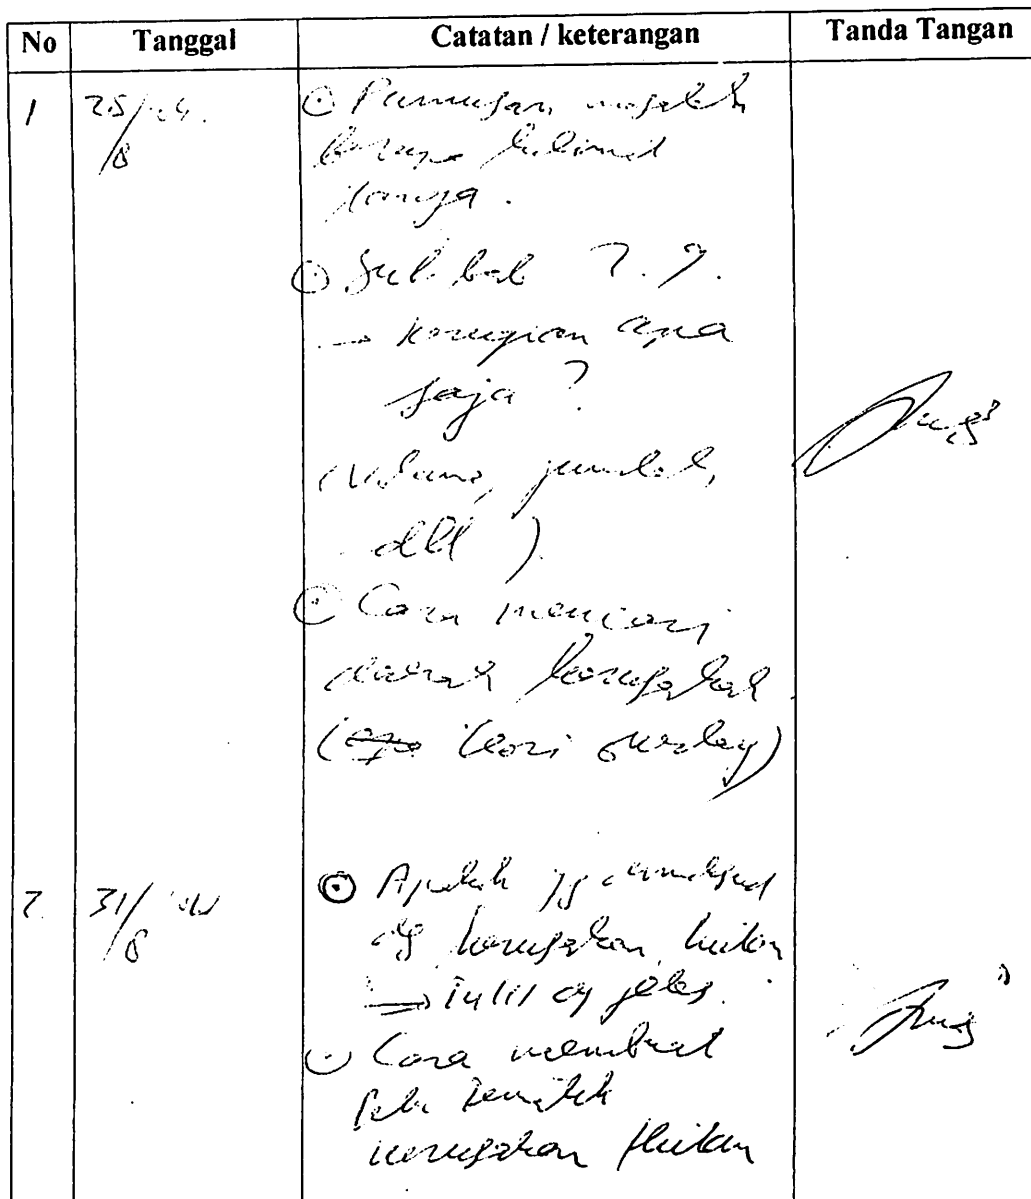 No Tanggal Catatan / keterangan Tanda Tangan
1 25/8 ⊙ Rumusan masalah
berupa kalimat
tanya.
⊙ Sub bab 2.2.
→ kerugian apa
saja ?
(Volume, jumlah,
dll )
⊙ Cara mencari
daerah kerusakan
( teori overlay)
2. 31/8 ⊙ Apakah yg dimaksud
dg kerusakan hutan
→ Tulis dg jelas.
⊙ Cara membuat
Peta Tematik
kerusakan Hutan